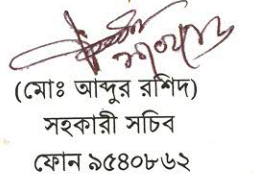 (মোঃ আব্দুর রশিদ)
সহকারী সচিব
ফোন ৯৫৪০৮৬২